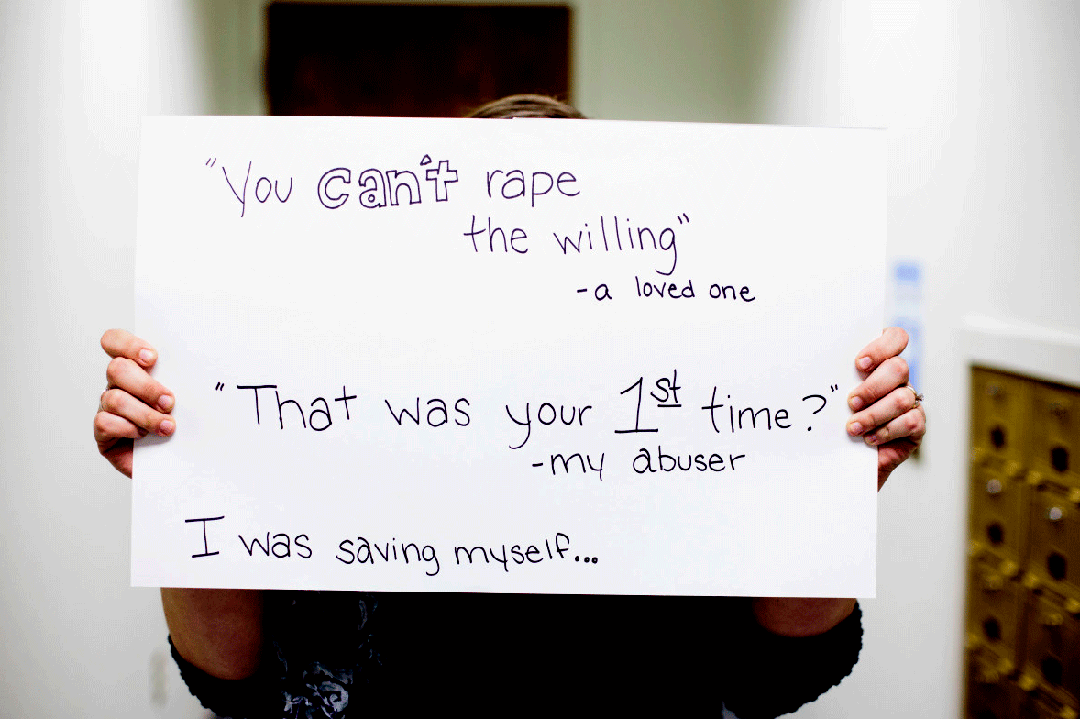 "You can't rape
the willing"
-a loved one
"That was your 1st time?"
-my abuser
I was saving myself...